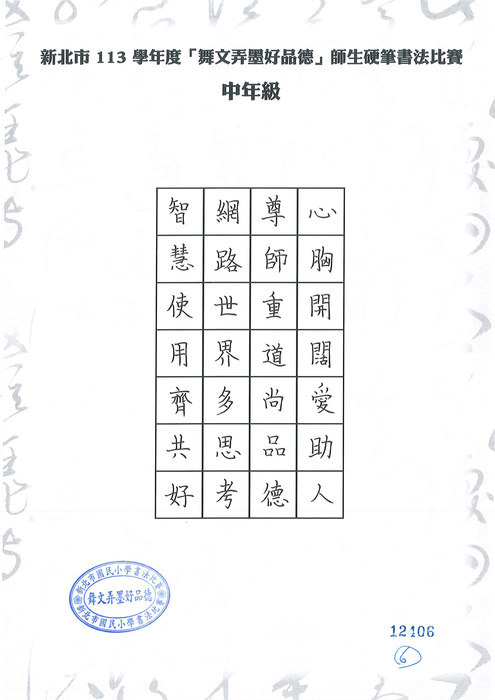 新北市 113 學年度「舞文弄墨好品德」師生硬筆書法比賽
中年級
心胸開闊愛助人
尊師重道尚品德
網路世界多思考
智慧使用齊共好
新北市國民小學書法比賽
舞文弄墨好品德
新北市國民小學書法比賽
12106
6